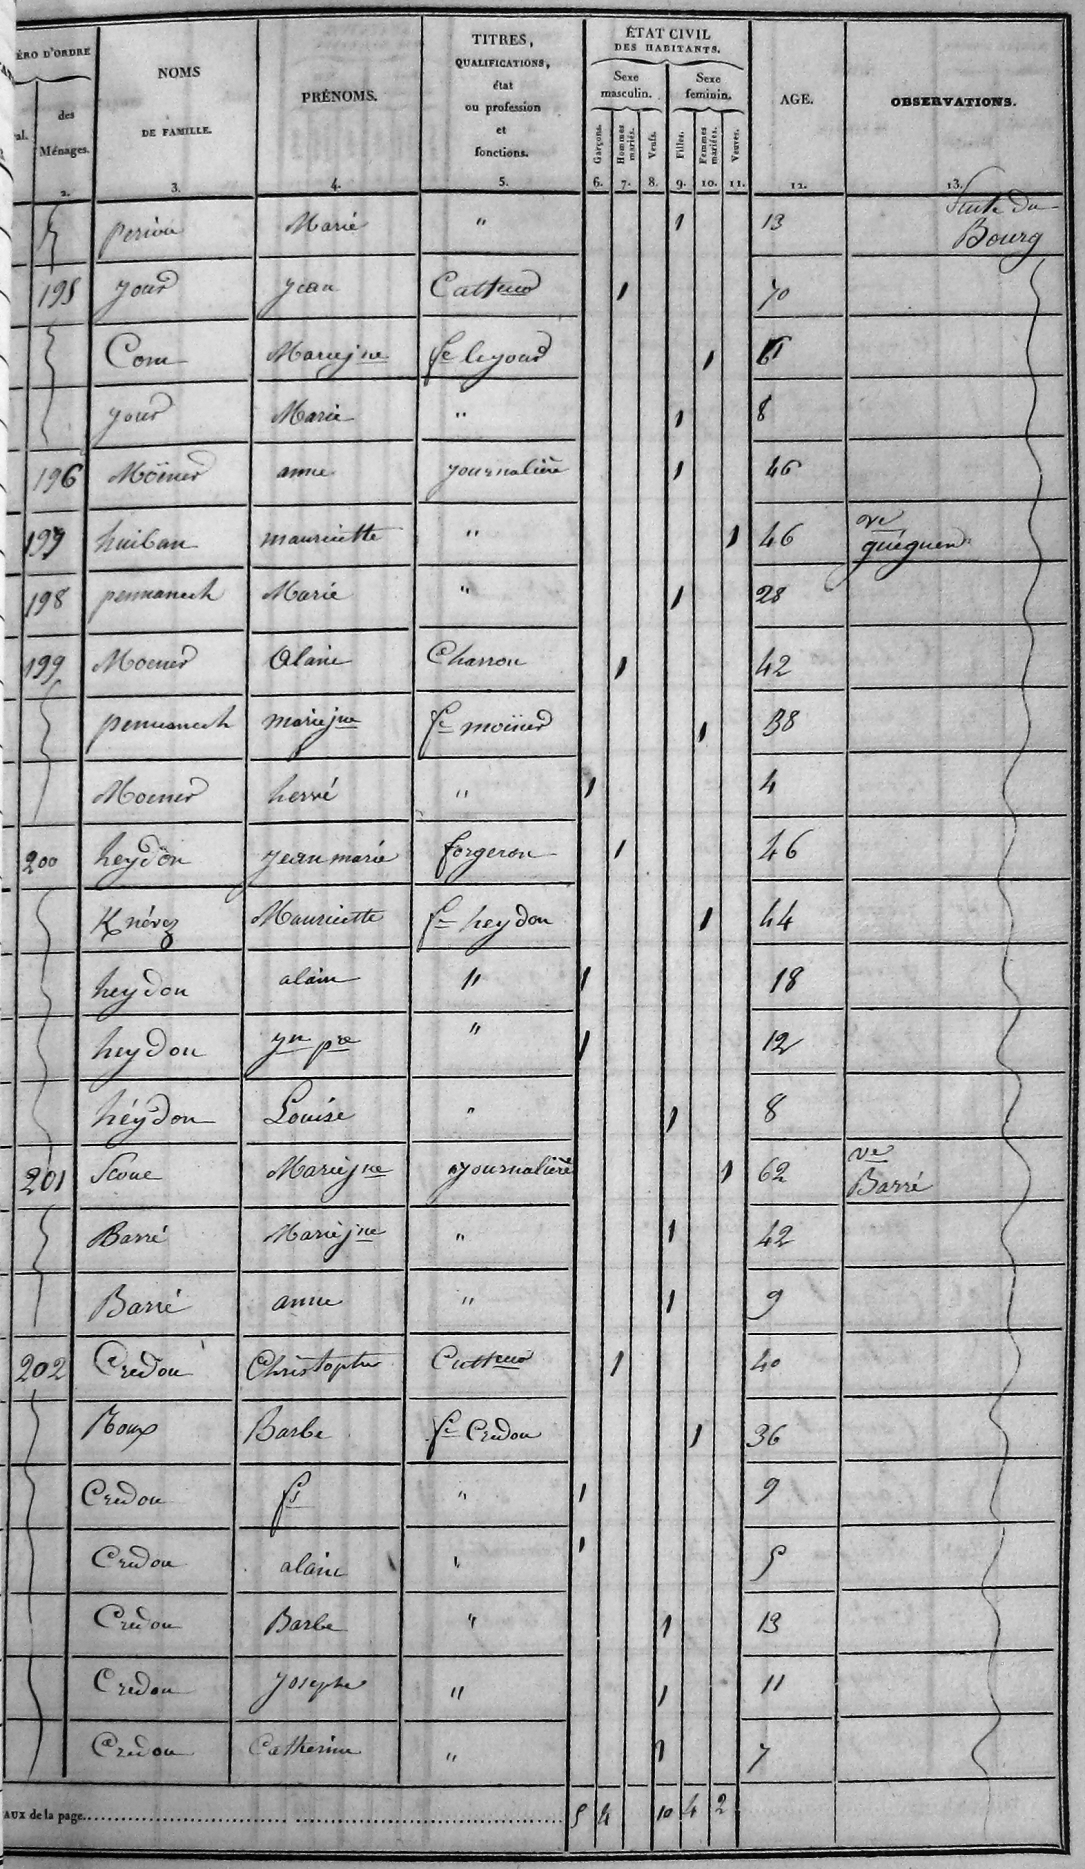 ÉRO D'ORDRE
al.
des
Ménages.
2.
NOMS
DE FAMILLE.
3.
PRÉNOMS.
4.
TITRES,
QUALIFICATIONS,
état
ou profession
et
fonctions.
5.
ÉTAT CIVIL
DES HABITANTS.
Sexe
masculin.
Sexe
feminin.
Garçons.
Hommes
mariés.
Veufs.
Filles.
Femmes
mariées.
Veuves.
6. 7. 8. 9. 10. 11.
AGE.
12.
OBSERVATIONS.
13.
Suite du
Bourg
perion Marie " 1 13
195 your jean Catteur 1 70
Com Marie jne fe le your 1 61
your Marie " 1 8
196 Moïner anne journalière 1 46
197 huiban mauricette " 1 46 ve guéguen
198 pennanech Marie " 1 28
199 Moener Alain Charron 1 42
pennanech marie jne fe moïner 1 38
Moener hervé " 1 4
200 heydon jean marie forgeron 1 46
Knévez Mauricette fe heydon 1 44
heydon alain " 1 18
heydon yn pre " 1 12
héydon Louise " 1 8
201 Scoue Marie jne journalière 1 62 ve Barré
Barré Marie jne " 1 42
Barré anne " 1 9
202 Credou Christophe Cutteur 1 40
Roux Barbe fe Credou 1 36
Credou fs " 1 9
Credou alain " 1 5
Credou Barbe " 1 13
Credou Josephe " 1 11
Credou Catherine " 1 7
AUX de la page 5 4 10 4 2